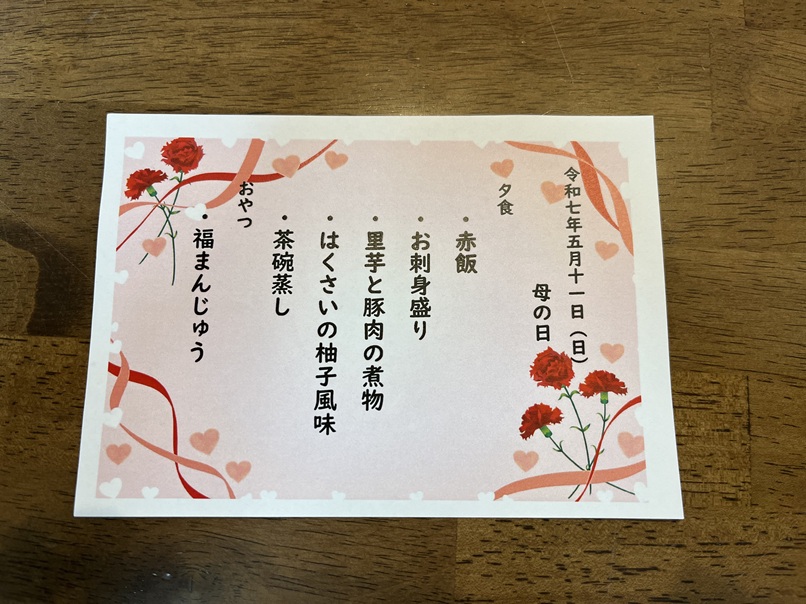 令和七年五月十一日（日）
母の日
夕食
・赤飯
・お刺身盛り
・里芋と豚肉の煮物
・はくさいの柚子風味
・茶碗蒸し
おやつ
・福まんじゅう